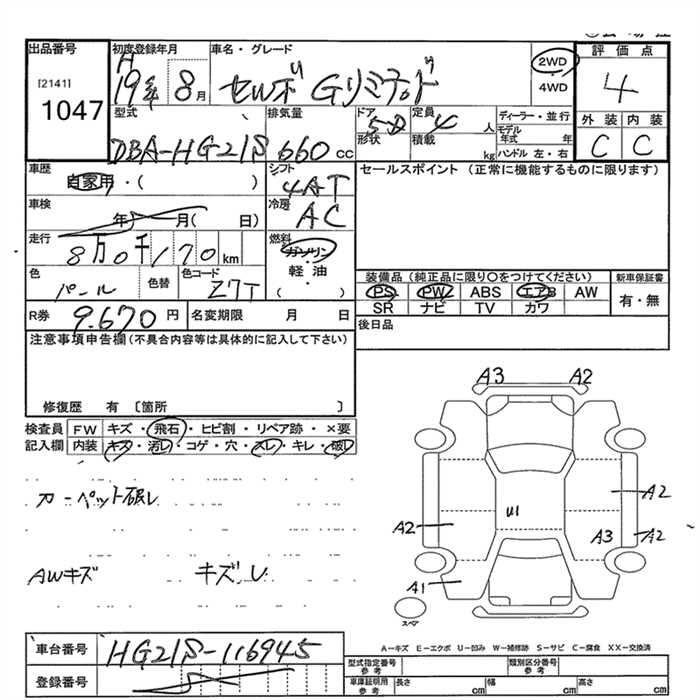 出品番号 初度登録年月 車名・グレード 評価点
[2141] 1047
H19年 8月 セルボ Gリミテッド 2WD 4WD 4
型式 排気量 ドア 定員 ディーラー・並行 外装 内装
DBA-HG21S 660cc 5D 4人 モデル年式 年 C C
形状 積載 kg ハンドル 左・右
車歴 シフト セールスポイント (正常に機能するものに限ります)
自家用・( ) 4AT
車検 年 月( 日) 冷房 AC
走行 8万0千170km 燃料 ガソリン
軽油
・
( )
色 パール 色替 色コード Z7T
装備品 (純正品に限り○をつけてください) 新車保証書
PS PW ABS エアB AW 有・無
SR ナビ TV カワ
R券 9.670円 名変期限 月 日 後日品
注意事項申告欄(不具合内容等は具体的に記入して下さい)
修復歴 有 〔箇所 〕
検査員 FW キズ・飛石・ヒビ割・リペア跡・×要
記入欄 内装 キズ・汚レ・コゲ・穴・スレ・キレ・破レ
A3 A2
カーペット破レ
A2
U1
A2 A3 A2
AWキズ
A1
スペア
A-キズ E-エクボ U-凹み W-補修跡 S-サビ C-腐食 XX-交換済
車台番号 HG21S-116945
登録番号
型式指定番号 参考 類別区分番号 参考
車庫証明用 参考 長さ cm 幅 cm 高さ cm